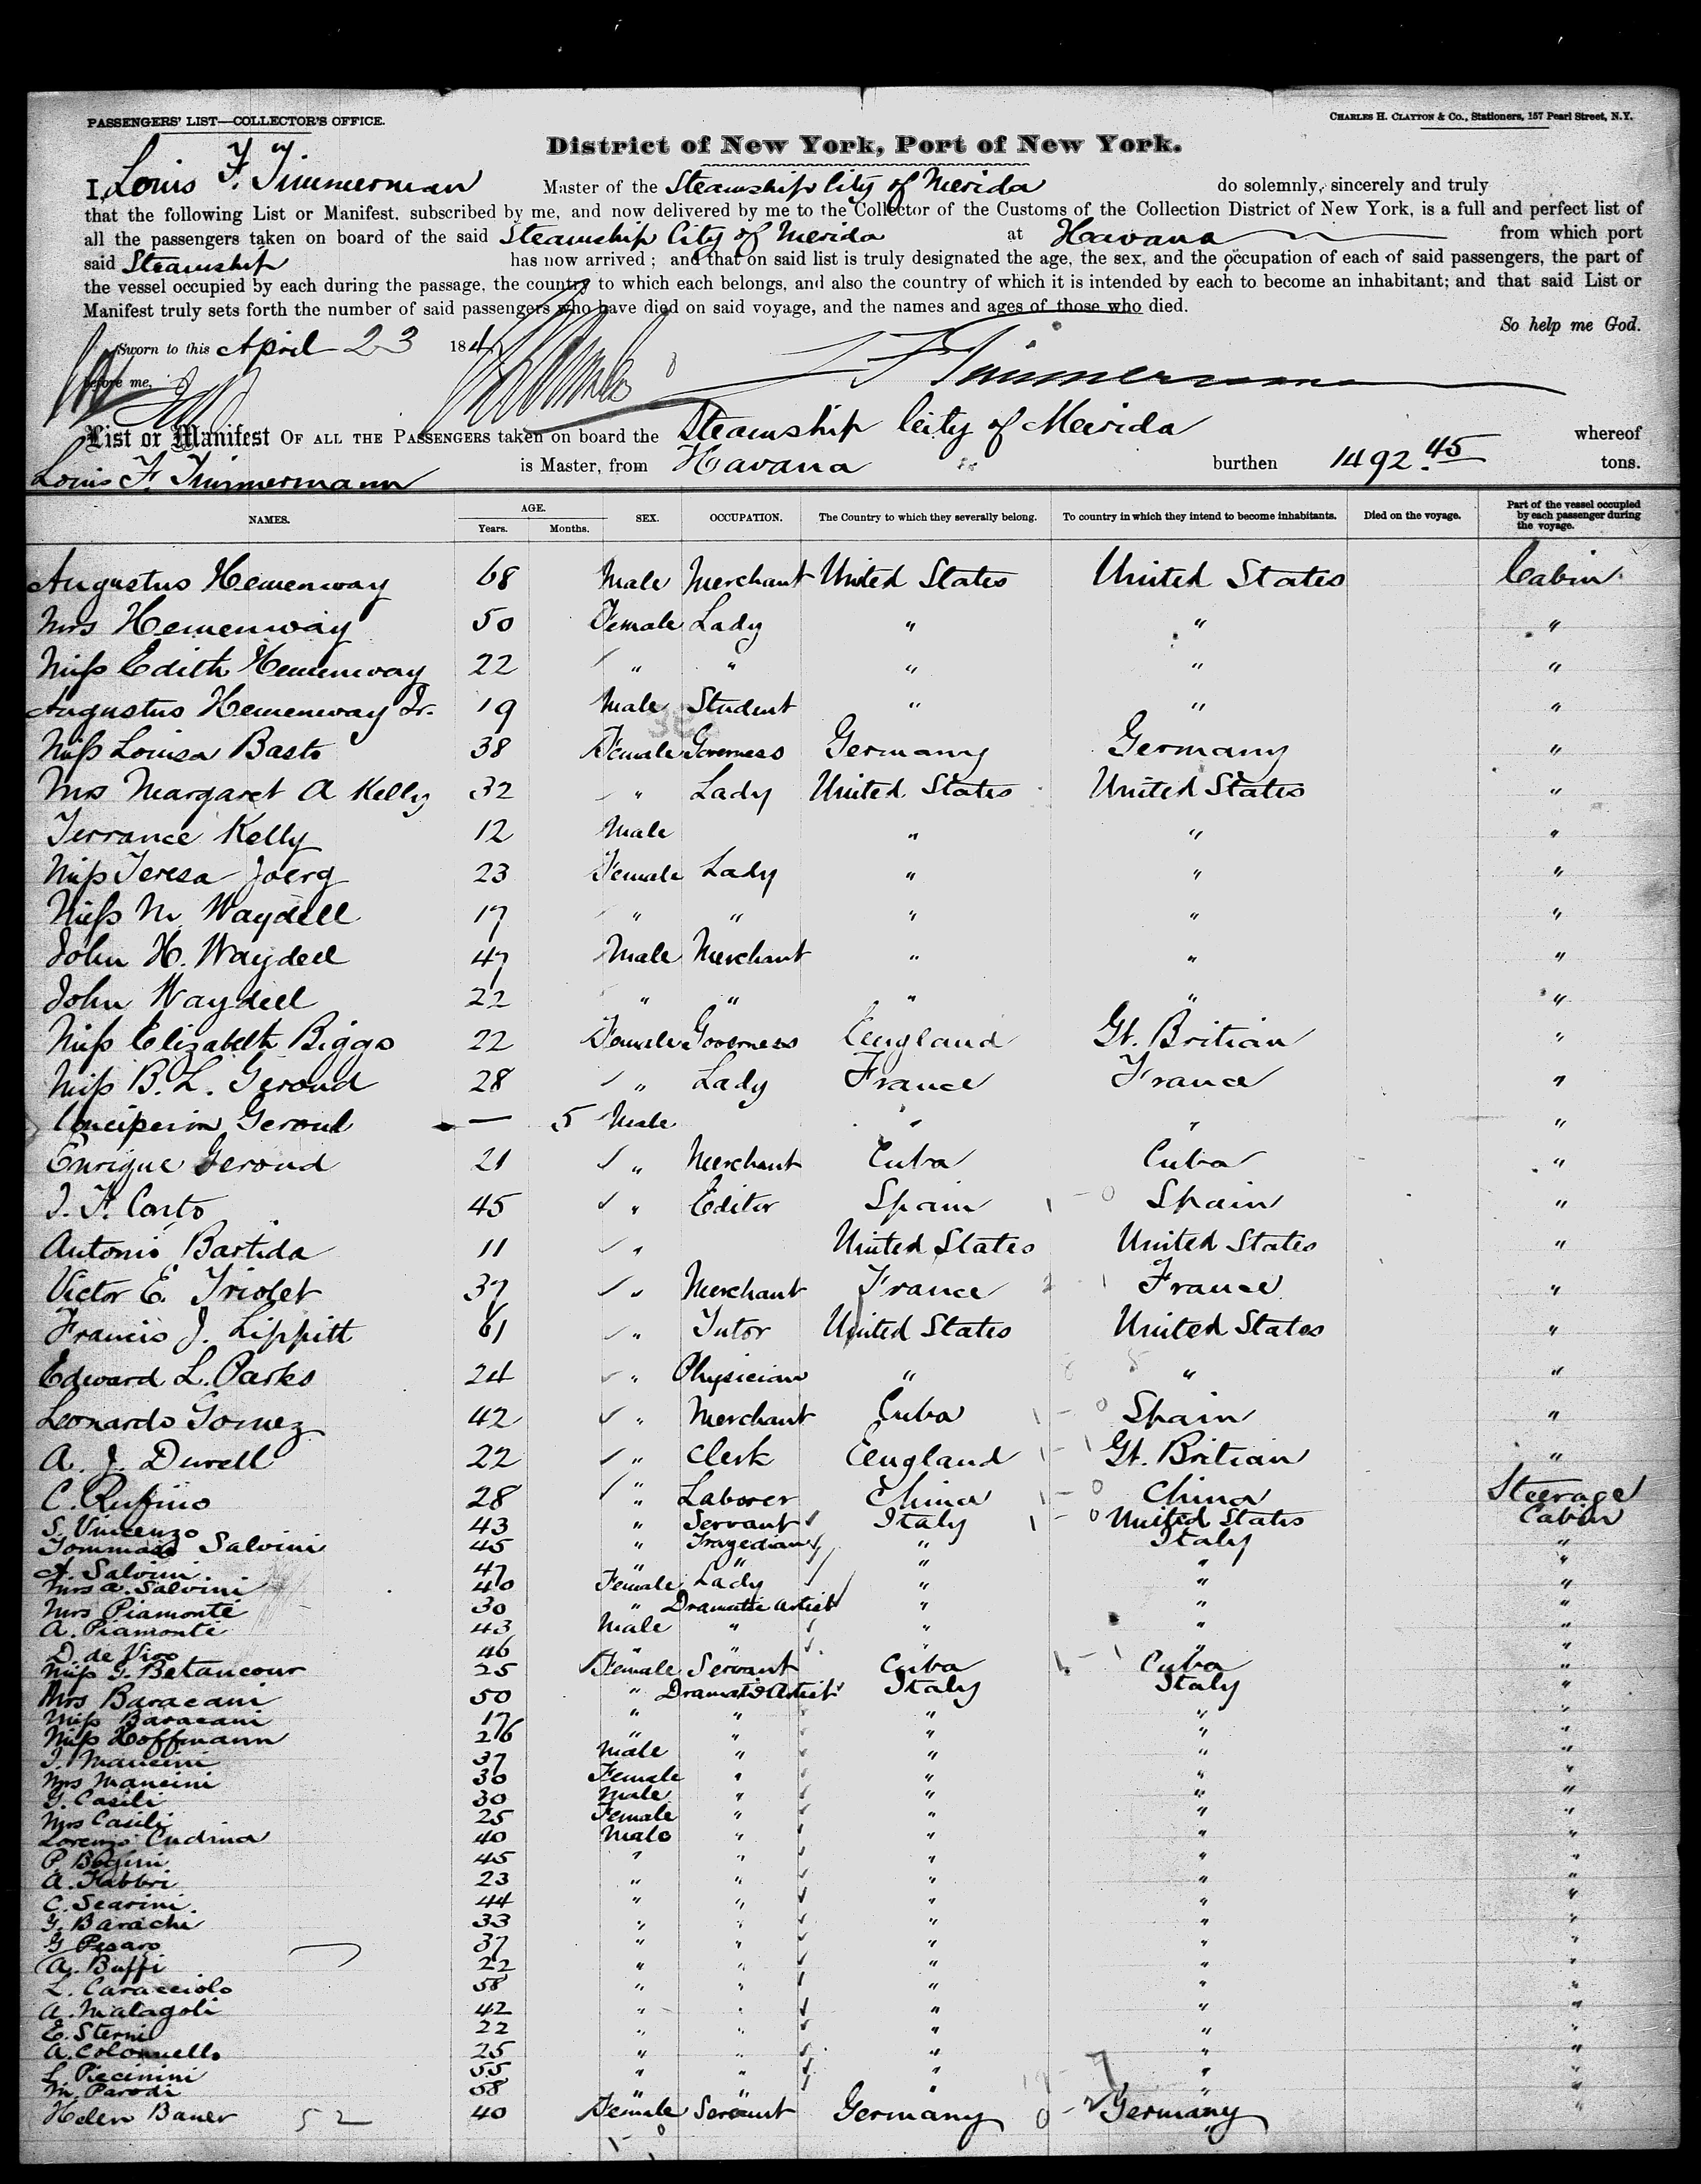 PASSENGERS' LIST—COLLECTOR'S OFFICE.
CHARLES H. CLAYTON & Co., Stationers, 157 Pearl Street, N.Y.
District of New York, Port of New York.
I, Louis F. Timmerman Master of the Steamship City of Merida do solemnly, sincerely and truly
that the following List or Manifest, subscribed by me, and now delivered by me to the Collector of the Customs of the Collection District of New York, is a full and perfect list of
all the passengers taken on board of the said Steamship City of Merida at Havana from which port
said Steamship has now arrived; and that on said list is truly designated the age, the sex, and the occupation of each of said passengers, the part of
the vessel occupied by each during the passage, the country to which each belongs, and also the country of which it is intended by each to become an inhabitant; and that said List or
Manifest truly sets forth the number of said passengers who have died on said voyage, and the names and ages of those who died.
So help me God.
Sworn to this April 23 18
before me, Timmerman
List or Manifest OF ALL THE PASSENGERS taken on board the Steamship City of Merida whereof
Louis F. Timmermann is Master, from Havana burthen 1492.45 tons.
NAMES. AGE. Years. Months. SEX. OCCUPATION. The Country to which they severally belong. To country in which they intend to become inhabitants. Died on the voyage. Part of the vessel occupied by each passenger during the voyage.
Augustus Hemenway 68 Male Merchant United States United States Cabin
Mrs Hemenway 50 Female Lady " " "
Miss Edith Hemenway 22 " " " " "
Augustus Hemenway Jr. 19 Male Student " " "
Miss Louisa Basto 38 Female Governess Germany Germany "
Mrs Margaret A Kelly 32 " Lady United States United States "
Terrance Kelly 12 Male " " "
Miss Teresa Joerg 23 Female Lady " " "
Miss M. Waydell 17 " " " " "
John H. Waydell 47 Male Merchant " " "
John Waydell 22 " " " " "
Miss Elizabeth Biggs 22 Female Governess England Gt. Britian "
Miss B. L. Geroud 28 " Lady France France "
Geroud — 5 Male " " "
Enrique Geroud 21 " Merchant Cuba Cuba "
45 " Editor Spain Spain "
Antonio Bastida 11 " United States United States "
Victor E. Triolet 37 " Merchant France France "
Francis J. Lippitt 61 " Tutor United States United States "
Edward L. Parks 24 " Physician " " "
Leonardo Gomez 42 " Merchant Cuba Spain "
A. J. Durell 22 " Clerk England Gt. Britian "
C. Rufino 28 " Laborer China China Steerage
S. Vincenzo 43 " Servant Italy United States Cabin
Tommaso Salvini 45 " Tragedian " Italy "
A. Salvini 47 " " " " "
Mrs A. Salvini 40 Female Lady " " "
Mrs Piamonte 30 " Dramatic Artist " " "
A. Piamonte 43 Male " " " "
D. de Vivo 46 " " " " "
Miss G. Betancour 25 Female Servant Cuba Cuba "
Mrs Baracani 50 " Dramatic Artist Italy Italy "
Miss Baracani 17 " " " " "
Miss Hoffmann 26 " " " " "
I. Mancini 37 Male " " " "
Mrs Mancini 30 Female " " " "
G. Casili 30 Male " " " "
Mrs Casili 25 Female " " " "
Lorenzo Cudina 40 Male " " " "
P. 45 " " " " "
A. Fabbri 23 " " " " "
C. Scarini 44 " " " " "
G. Barachi 33 " " " " "
G Pesaro 37 " " " " "
A. Buffi 22 " " " " "
L. Caracciolo 58 " " " " "
A. Malagoli 42 " " " " "
E. Sterni 22 " " " " "
A. Colonnello 25 " " " " "
L. Piccinini 55 " " " " "
M. Parodi 58 " " " " "
Helen Bauer 52 40 Female Servant Germany Germany "